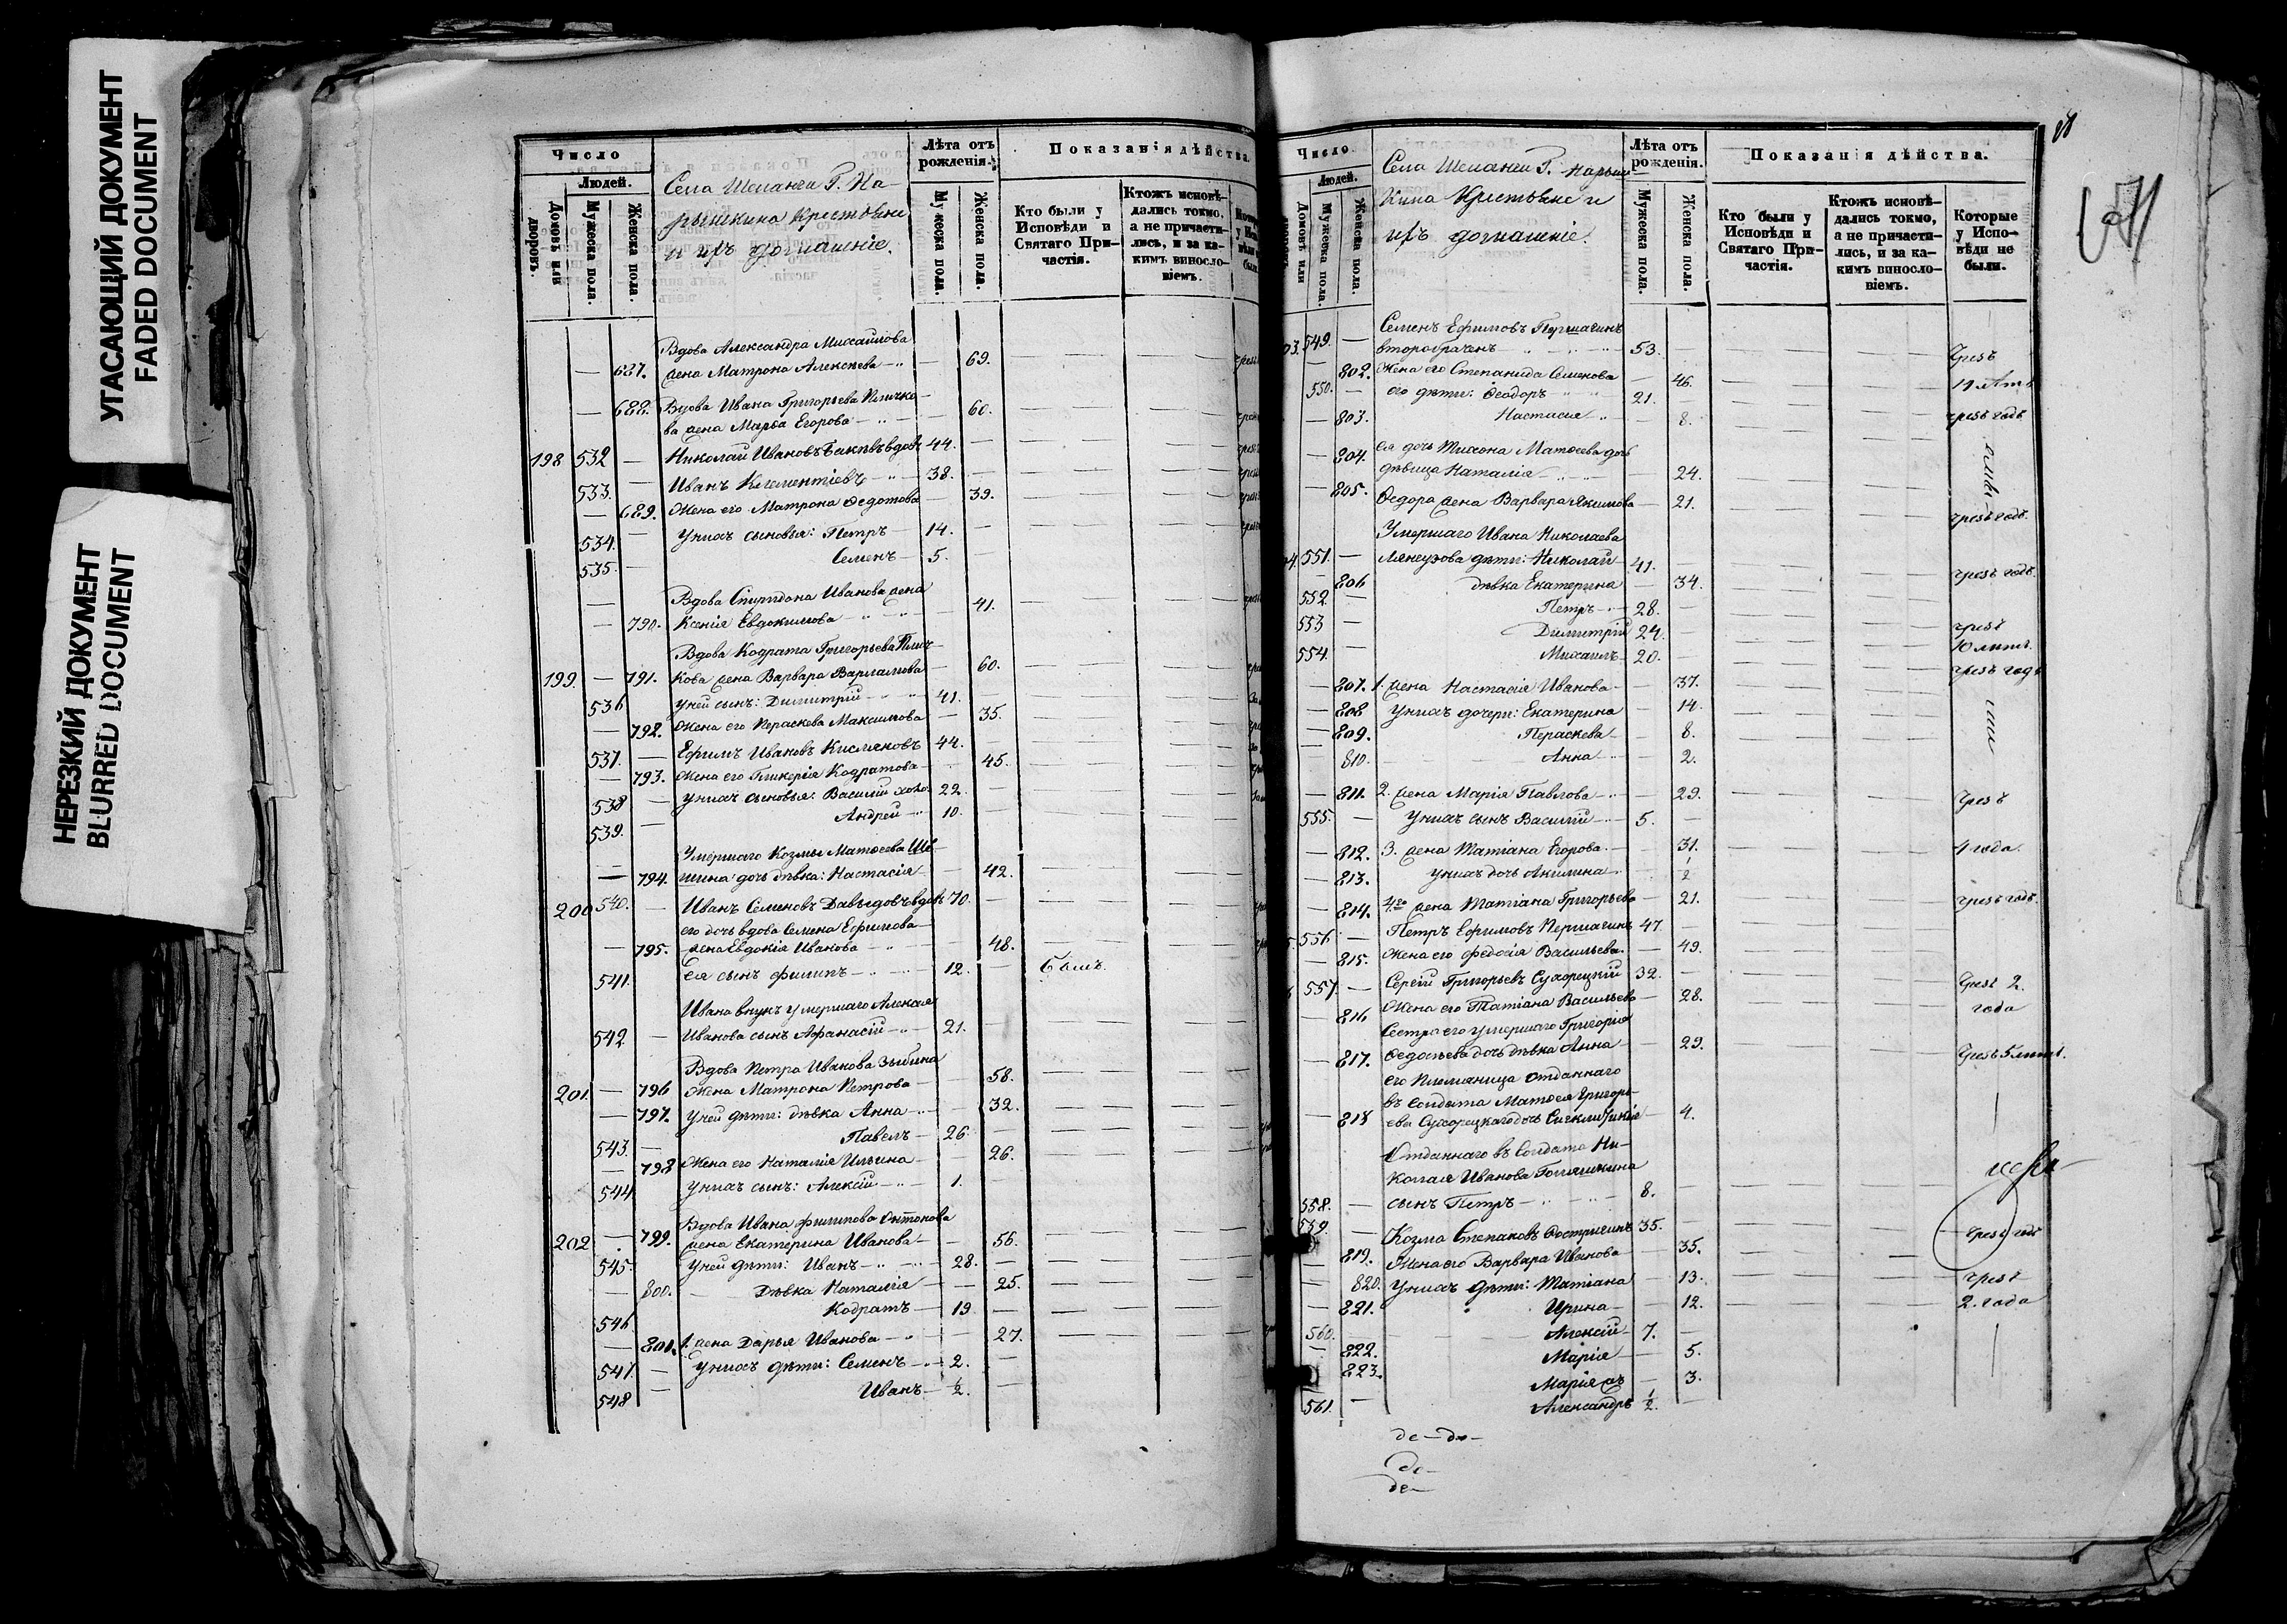 УГАСАЮЩИЙ ДОКУМЕНТ
FADED DOCUMENT
НЕРЕЗКИЙ ДОКУМЕНТ
BLURRED DOCUMENT
Число
Людей.
Домовъ или дворовъ.
Мужеска пола.
Женска пола.
Села Шепанги Г. На-
рышкина крестьяне
и ихъ домашніе.
Лѣта отъ рожденія.
Мужеска пола.
Женска пола.
Показанія дѣйства.
Кто были у Исповѣди и Святаго Причастія.
Ктожъ исповѣдались токмо, а не причастились, и за какимъ винословіемъ.
Вдова Александра Михайлова
— 687. жена Матрона Алексѣева — 69.
— 688. Вдова Ивана Григорьева
ва жена Марѳа Егорова — 60.
198 532 — Николай Ивановъ вдовъ 44.
533. — Иванъ Клементіевъ — 38.
— 689. Жена его Матрона Ѳедотова — 39.
534. — У нихъ сыновья: Петръ — 14.
535. — Семенъ — 5.
Вдова Спиридона Иванова жена
— 790. Ксенія Евдокимова — 41.
Вдова Кодрата Григорьева
199. — 791. кова жена Варвара Варламова — 60.
536 У ней сынъ: Димитрій — 41.
— 792. Жена его Пераскева Максимова — 35.
537. — Ефимъ Ивановъ Кисляковъ 44.
— 793. Жена его Гликерія Кодратова — 45.
538 — У нихъ сыновья: Василій холо. 22.
539. — Андрей — 10.
Умершаго Козмы Матѳеева
— 794. шина дочь дѣвка: Настасія — 42.
200 540. — Иванъ Семеновъ Давыдовъ вдовъ 70.
его дочь вдова Семена Ефимова
— 795. жена Евдокія Иванова — 48.
541. Ея сынъ Филипъ — 12. — былъ.
Ивана внукъ умершаго Алексія
542. — Иванова сынъ Афанасій — 21.
Вдова Петра Иванова Зыбина
201. — 796 Жена Матрона Петрова — 58.
— 797. У ней дѣти: дѣвка Анна — 32.
543. — Павелъ — 26.
— 798 Жена его Наталія Ильина — 26.
544. У нихъ сынъ: Алексій — 1.
Вдова Ивана Филипова Антонова
202 — 799. жена Екатерина Иванова — 56.
545. У ней дѣти: Иванъ — 28. —
— 800. Дѣвка Наталія — 25.
546. Кодратъ — 19 —
— 801. 1. жена Дарья Иванова — 27.
547. — У нихъ дѣти: Семенъ — 2. —
548 — Иванъ — ½. —
Число
Людей.
Домовъ или
Мужеска пола.
Женска пола.
Села Шепанги Г. Нарыш-
кина Крестьяне и
ихъ домашніе.
Лѣта отъ рожденія.
Мужеска пола.
Женска пола.
Показанія дѣйства.
Кто были у Исповѣди и Святаго Причастія.
Ктожъ исповѣдались токмо, а не причастились, и за какимъ винословіемъ.
Которые у Исповѣди не были.
Семенъ Ефимовъ Першагинъ
03. 549. — второбраченъ — 53. — чрезъ
802. Жена его Степанида Семенова — 46.
550. — его дѣти: Ѳеодоръ 21.
— 803. Настасія — 8. чрезъ годъ
804. ея дочь Тихона Матѳеева дочь
дѣвица Наталія — 24.
— 805. Ѳедора жена Варвара Якимова — 21. чрезъ годъ.
Умершаго Ивана Николаева
04. 551. — дѣти: Николай — 41.
— 806 дѣвка Екатерина — 34. чрезъ годъ.
552. — Петръ — 28. —
553 — Димитрій 24. — чрезъ
554. — Михаилъ — 20. — 10 лѣтъ.
— 807. 1. жена Настасія Иванова — 37. чрезъ годъ
— 808 У нихъ дочери: Екатерина — 14.
— 809. Пераскева — 8.
810. Анна — 2.
— 811. 2. жена Марія Павлова — 29. чрезъ
555. — У нихъ сынъ Василій — 5. —
— 812. 3. жена Татіана Егорова — 31. 4 года.
— 813. У нихъ дочь Акилина — ½
— 814. 4го жена Татіана Григорьева — 21. чрезъ годъ.
556 — Петръ Ефимовъ Першагинъ 47. —
— 815. Жена его Федосія Васильева. — 49.
557. — Сергій Григорьевъ Сухорецкій 32. — чрезъ 2.
— 816 Жена его Татіана Васильева — 28. года
Сестра его умершаго Григорія
— 817. дочь дѣвка Анна — 29. чрезъ 5 лѣтъ.
Его племянница отданнаго
въ солдата Матѳея Григорь-
— 818 ева Сухорецкаго дочь — 4.
Отданнаго въ Солдата Ни-
колая Иванова
558. — сынъ Петръ — 8.
559. — Козма Степановъ 35. — чрезъ годъ
819. Жена его Варвара Иванова — 35.
— 820. У нихъ дѣти: Татіана — 13. чрезъ
— 821. Ирина — 12. 2. года
560. — Алексій — 7. —
822. Марія — 5.
823. Марія — 3.
561. — Александръ ½. —